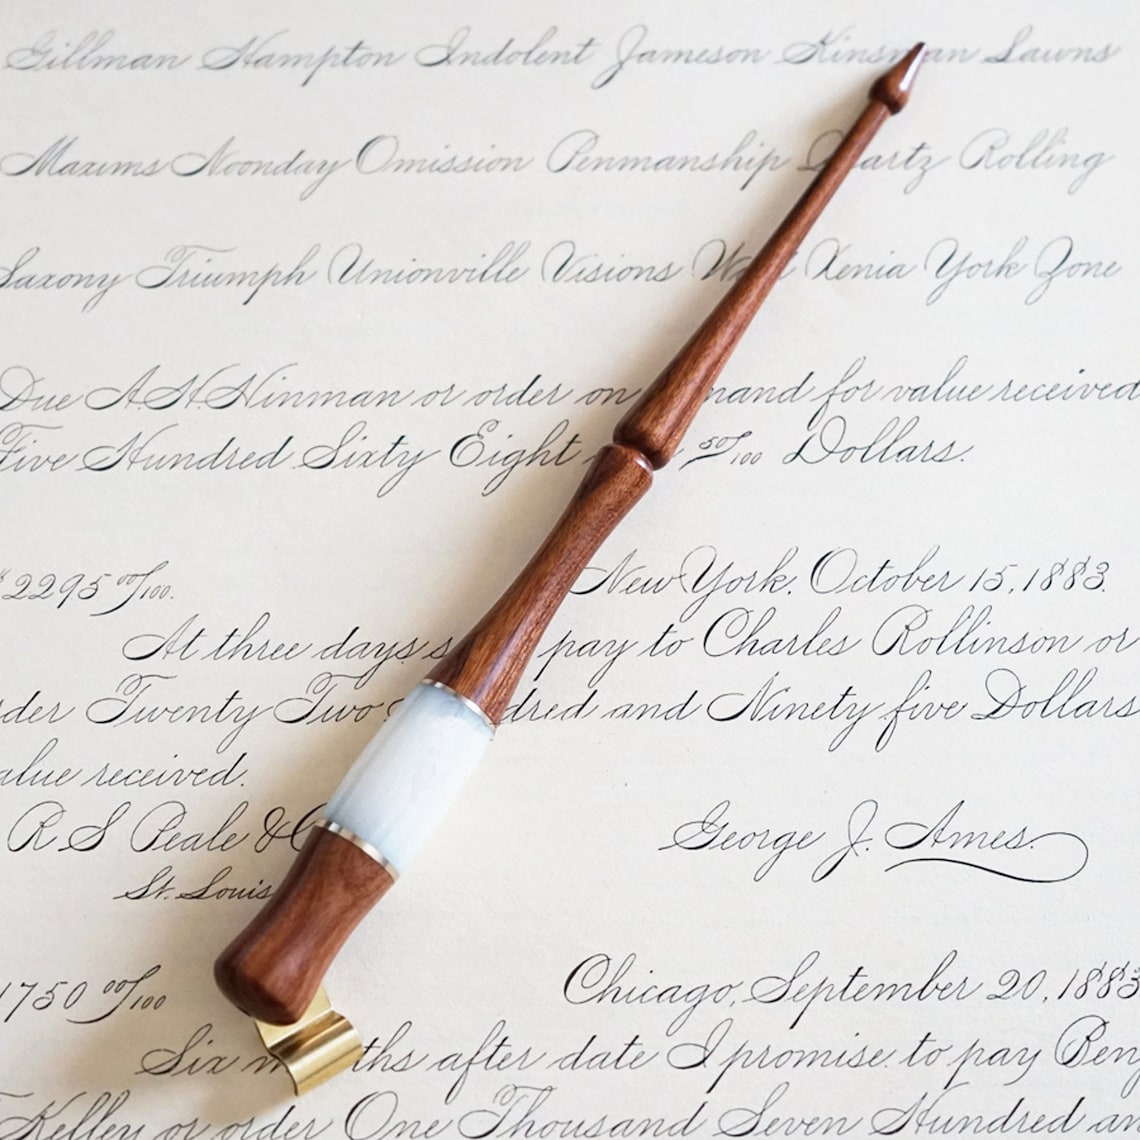 Gillman Hampton Indolent Jameson Kinsman Lawns
Maxims Noonday Omission Penmanship Quartz Rolling
Saxony Triumph Unionville Visions Xenia York Zone
Due A.H. Hinman or order on mand for value received
Five Hundred Sixty Eight 50/100 Dollars.
$2295 00/100. New York, October 15, 1883.
At three days s pay to Charles Rollinson or
der Twenty Two dred and Ninety five Dollars
alue received.
R S Peale & C George J. Ames.
St. Louis
1750 00/100 Chicago, September 20, 1883
Six m ths after date I promise to pay Benj
Kelley or order One Thousand Seven Hundred an